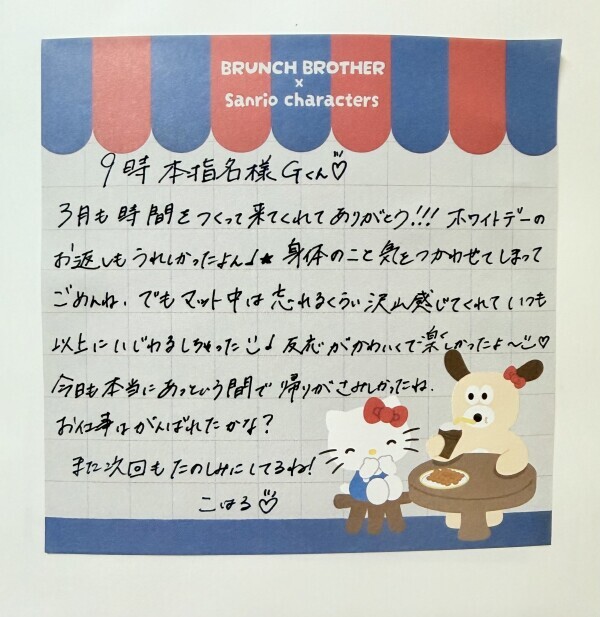 BRUNCH BROTHER
×
Sanrio characters
9時 本指名様 Gくん♡
3月も時間をつくって来てくれてありがとう!!! ホワイトデーの
お返しもうれしかったよん♩★ 身体のこと気をつかわせてしまって
ごめんね. でもマット中は忘れるくらい沢山感じてくれていつも
以上にいじわるしちゃった♩ 反応がかわいくて楽しかったよ〜♡
今日も本当にあっという間で帰りがさみしかったね.
お仕事はがんばれたかな?
また次回もたのしみにしてるね!
こはる♡